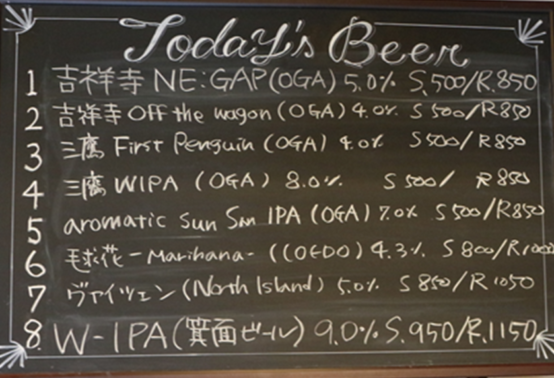 Today's Beer
1 吉祥寺 NE:GAP(OGA) 5.0% S.500/R.850
2 吉祥寺 Off the wagon (OGA) 4.0% S 500/R850
3 三鷹 First Penguin (OGA) 4.0% S 500/R850
4 三鷹 WIPA (OGA) 8.0% S 500/ R850
5 aromatic Sun San IPA (OGA) 7.0% S 500/R850
6 毬花 -Marihana- ((COEDO) 4.3% S 800/R1000
7 ヴァイツェン (North Island) 5.0% S 850/R1050
8 W-IPA (箕面ビール) 9.0% S.950/R.1150